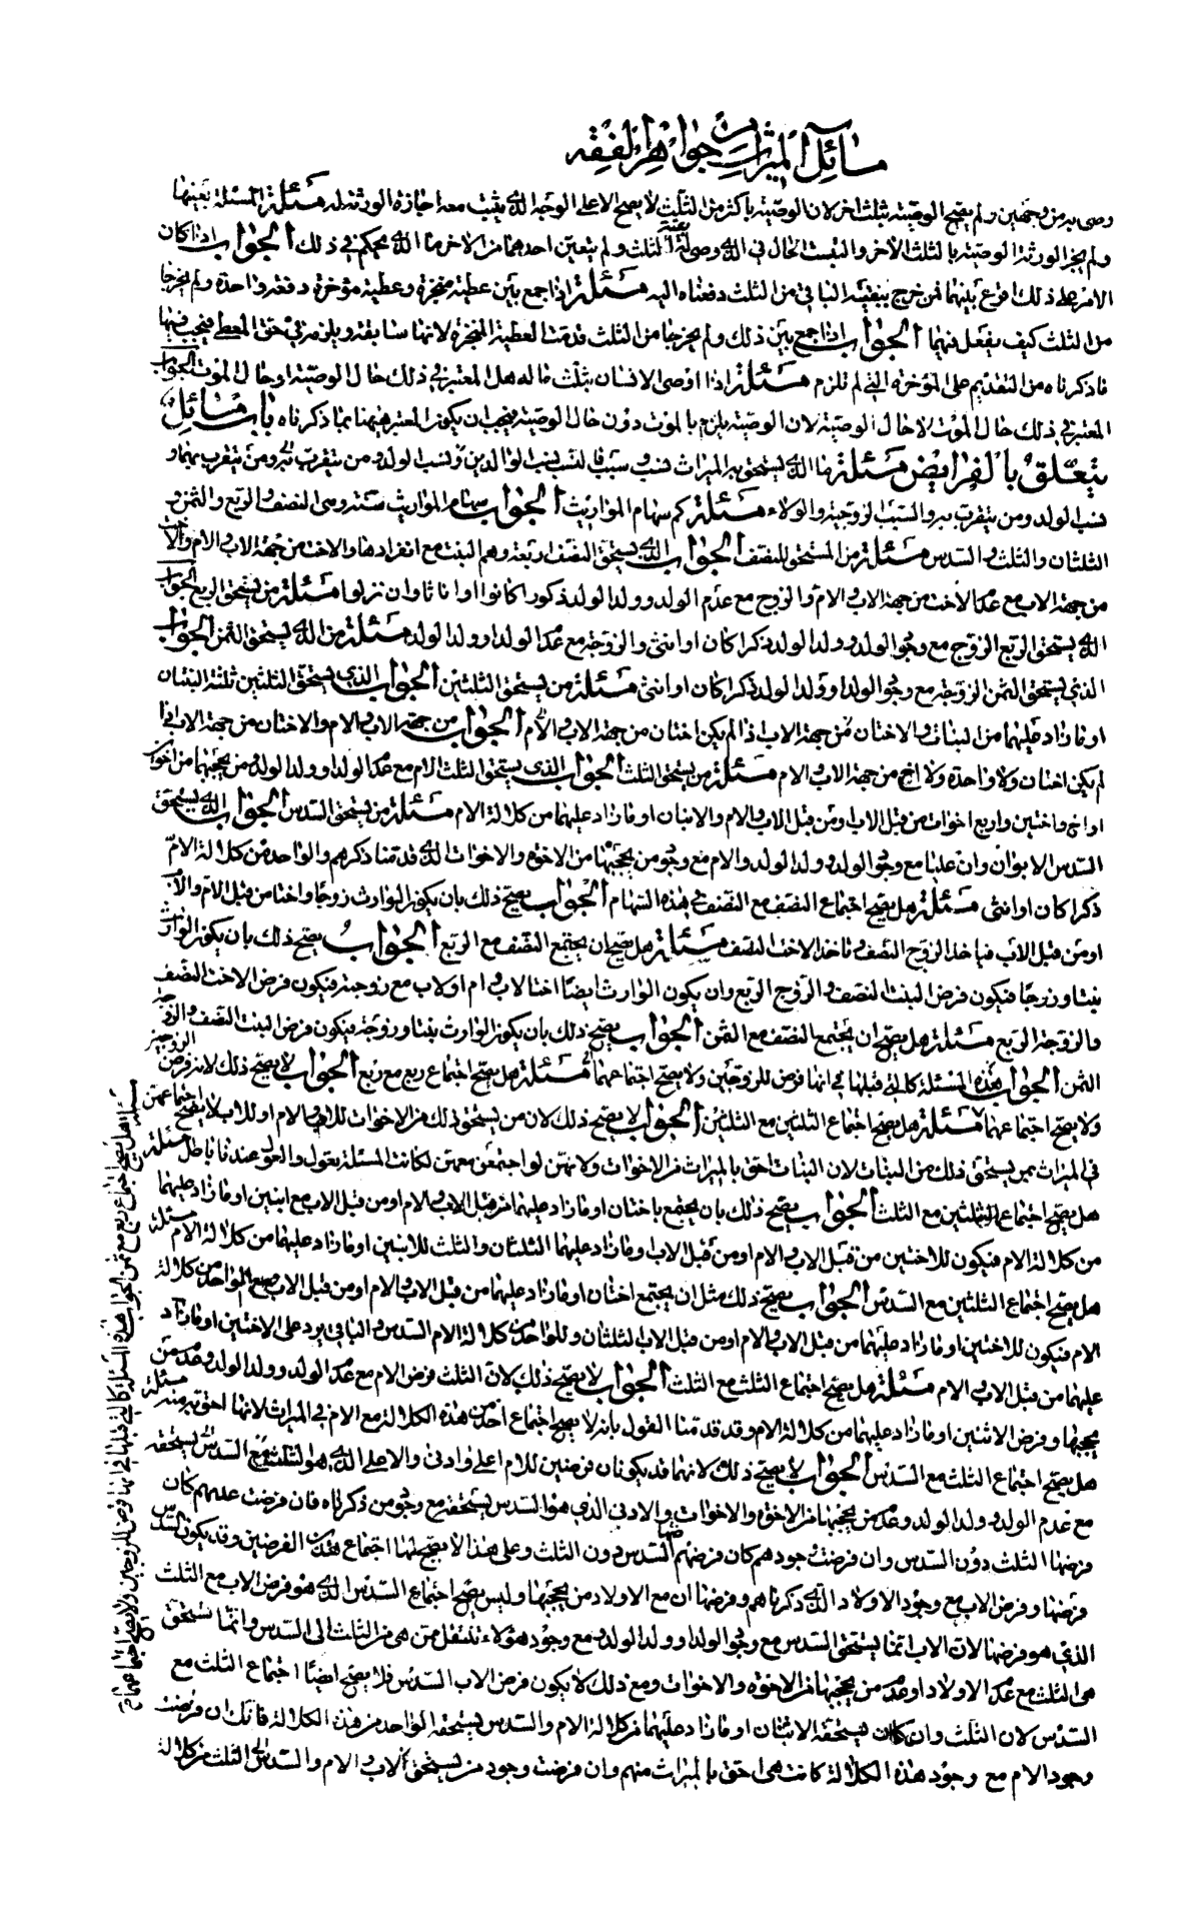 مسائل الميراث من جواهر الفقه
وصى به من وجهين ولم يصح الوصية بثلث اخر لان الوصية باكثر من الثلث لا يصح الا على الوجه الذى يثبت معه اجازة الورثة له مسئلة المسئلة بعينها
ولم يجز الورثة الوصية بالثلث الاخر والتبست الحال في الذى وصى له بالثلث ولم يتعين احدهما من الاخر ما الذى يحكم في ذلك الجواب اذا كان
الامر على ذلك اقرع بينهما فمن خرج بيقينه الباقي من الثلث دفعناه اليه مسئلة اذا جمع بين عطية منجزة وعطية مؤخرة دفعة واحدة ولم يخرجا
من الثلث كيف يفعل فيهما الجواب اذا جمع بين ذلك ولم يخرجا من الثلث قدمت العطية المنجزة لانها سابقة ويلزم في حق المعطى فيجب فيها
ما ذكرناه من التقديم على المؤخرة التي لم تلزم مسئلة اذا اوصى الانسان بثلث ماله هل المعتبر في ذلك حال الوصية او حال الموت الجواب
المعتبر في ذلك حال الموت لا حال الوصية لان الوصية يلزم بالموت دون حال الوصية فيجب ان يكون المعتبر فيهما بما ذكرناه باب مسائل
يتعلق بالفرايض مسئلة ما الذى يستحق به الميراث نسب وسبب فالنسب نسب الوالدين ونسب الولد ومن يتقرب به ومن يتقرب بهما و
نسب الولد ومن يتقرب به والسبب الزوجية والولاء مسئلة كم سهام المواريث الجواب سهام المواريث ستة وهى النصف والربع والثمن و
الثلثان والثلث والسدس مسئلة من المستحق للنصف الجواب الذى يستحق النصف اربعة وهم البنت مع انفرادها والاخت من جهة الاب والام والاخت
من جهة الاب مع عدم الاخت من جهة الاب والام والزوج مع عدم الولد وولد الولد ذكورا كانوا او اناثا وان نزلوا مسئلة من يستحق الربع الجواب
الذى يستحق الربع الزوج مع وجود الولد وولد الولد ذكرا كان او انثى والزوجة مع عدم الولد او ولد الولد مسئلة من الذى يستحق الثمن الجواب
الذي يستحق الثمن الزوجة مع وجود الولد او ولد الولد ذكرا كان او انثى مسئلة من يستحق الثلثين الجواب الذى يستحق الثلثين ثلثة البنتان
او ما زاد عليهما من البنات والاختان من جهة الاب اذا لم يكن اختان من جهة الاب والام الجواب من جهة الاب والام والاختان من جهة الاب اذا
لم يكن اختان ولا واحدة ولا اخ من جهة الاب والام مسئلة من يستحق الثلث الجواب الذى يستحق الثلث الام مع عدم الولد او ولد الولد ومن يحجبها من اخوين
او اخ واختين واربع اخوات من قبل الاب او من قبل الاب والام والاثنان او ما زاد عليهما من كلالة الام مسئلة من يستحق السدس الجواب الذى يستحق
السدس الابوان وان علينا مع وجود الولد وولد الولد والام مع وجود من يحجبها من الاخوة والاخوات الذى قدمنا ذكرهم والواحد من كلالة الام
ذكرا كان او انثى مسئلة هل يصح اجتماع النصف مع النصف في هذه السهام الجواب يصح ذلك بان يكون الوارث زوجا واختا من قبل الام والاب
او من قبل الاب فياخذ الزوج النصف وتاخذ الاخت النصف مسئلة هل يصح ان يجتمع النصف مع الربع الجواب يصح ذلك بان يكون الوارث
بنتا وزوجا فيكون فرض البنت النصف والزوج الربع وان يكون الوارث ايضا اختا لاب وام او لاب مع زوجة فيكون فرض الاخت النصف
والزوجة الربع مسئلة هل يصح ان يجتمع النصف مع الثمن الجواب يصح ذلك بان يكون الوارث بنتا وزوجة فيكون فرض البنت النصف والزوجة
الثمن الجواب هذه المسئلة كالتي قبلها في انها فرض للزوجين ولا يصح اجتماعهما مسئلة هل يصح اجتماع ربع مع ربع الجواب لا يصح ذلك لانه فرض الزوجين
ولا يصح اجتماعهما مسئلة هل يصح اجتماع الثلثين مع الثلثين الجواب لا يصح ذلك لان من يستحق ذلك من الاخوات للاب والام او للاب لا يصح اجتماعهن
في الميراث بمن يستحق ذلك من البنات لان البنات احق بالميراث من الاخوات ولانهن لو اجتمعن معهن لكانت المسئلة بعول والعول عندنا باطل مسئلة
هل يصح اجتماع الثلثين مع الثلث الجواب يصح ذلك بان يجتمع باختان او ما زاد عليهما من قبل الاب والام او من قبل الاب مع ابنين او ما زاد عليهما
من كلالة الام فيكون للاختين من قبل الاب والام او من قبل الاب او ما زاد عليهما الثلثان والثلث للاثنين او ما زاد عليهما من كلالة الام مسئلة
هل يصح اجتماع الثلثين مع السدس الجواب يصح ذلك مثل ان يجتمع اختان او ما زاد عليهما من قبل الاب والام او من قبل الاب مع الواحد من كلالة
الام فيكون للاختين او ما زاد عليهما من قبل الاب والام او من قبل الاب الثلثان وللواحد من كلالة الام السدس والباقي يرد على الاختين او ما زاد
عليهما من قبل الاب والام مسئلة هل يصح اجتماع الثلث مع الثلث الجواب لا يصح ذلك لان الثلث فرض الام مع عدم الولد وولد الولد وعدم من
يحجبها وفرض الاثنين او ما زاد عليهما من كلالة الام وقد قدمنا القول بانه لا يصح اجتماع احد من هذه الكلالة مع الام في الميراث لانها احق به منه مسئلة
هل يصح اجتماع الثلث مع السدس الجواب لا يصح ذلك لانهما قد يكونان فرضين للام اعلى وادنى والاعلى الذى هو الثلث مع السدس يستحقه
مع عدم الولد وولد الولد وعدم من يحجبها من الاخوة والاخوات والادنى الذي هو السدس يستحقه مع وجود من ذكرناه فان فرضت عدمهم كان
فرضها الثلث دون السدس وان فرضت وجودهم كان فرضها السدس دون الثلث وعلى هذا لا يصح لها اجتماع هذين الفرضين وقد يكون السدس
فرضها وفرض الاب مع وجود الاولاد الذى ذكرناهم وفرضها ان مع الاولاد من يحجبها وليس يصح اجتماع السدس الذى هو فرض الاب مع الثلث
الذي هو فرضها لان الاب انما يستحق السدس مع وجود الولد او ولد الولد ومع وجود هؤلاء تنتقل هى من الثلث الى السدس وانما تستحق
هى الثلث مع عدم الاولاد او عدم من يحجبها من الاخوة والاخوات ومع ذلك لا يكون فرض الاب السدس فلا يصح ايضا اجتماع الثلث مع
السدس لان الثلث وان كان يستحقه الاثنان او ما زاد عليهما من كلالة الام والسدس يستحقه الواحد من هذه الكلالة فانك ان فرضت
وجود الام مع وجود هذه الكلالة كانت هى احق بالميراث منهم وان فرضت وجود من يستحق الاب والام والسدس الى الثلث من كلالة
مسئلة هل يصح اجتماع ربع مع ثمن الجواب هذه المسئلة كالتي قبلها في انها فرض للزوجين ولا يصح اجتماعهما